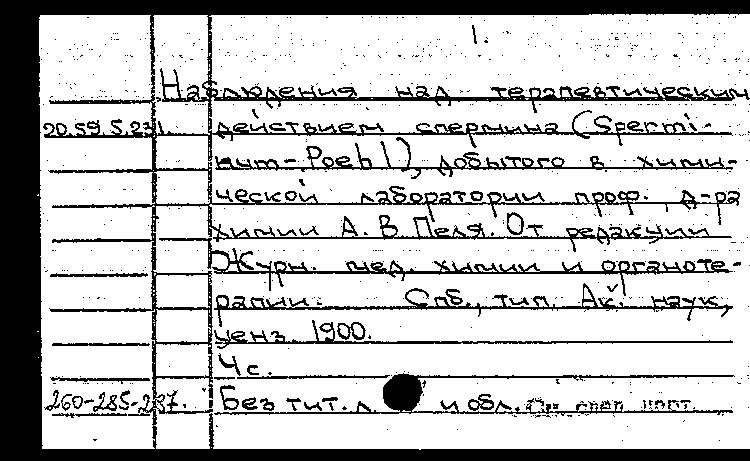 1.
Наблюдения над терапевтическим
20.59.5.231. действием спермина (Spermi-
num-Poehl), добытого в хими-
ческой лаборатории проф. д-ра
химии А. В. Пеля. От редакции
Журн. мед. химии и органоте-
рапии. Спб., тип. Ак. наук,
ценз. 1900.
4 с.
260-285-287. Без тит. л. и обл.